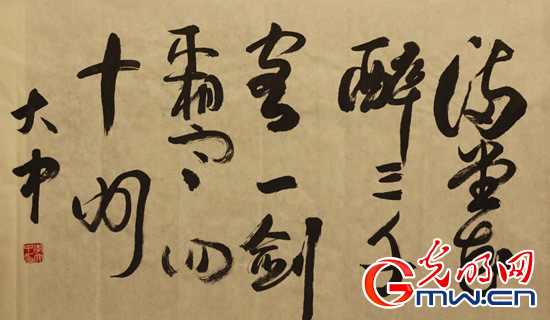 满堂花
醉三千
客一剑
霜寒四
十州
大中
光明网
Gmw.cn